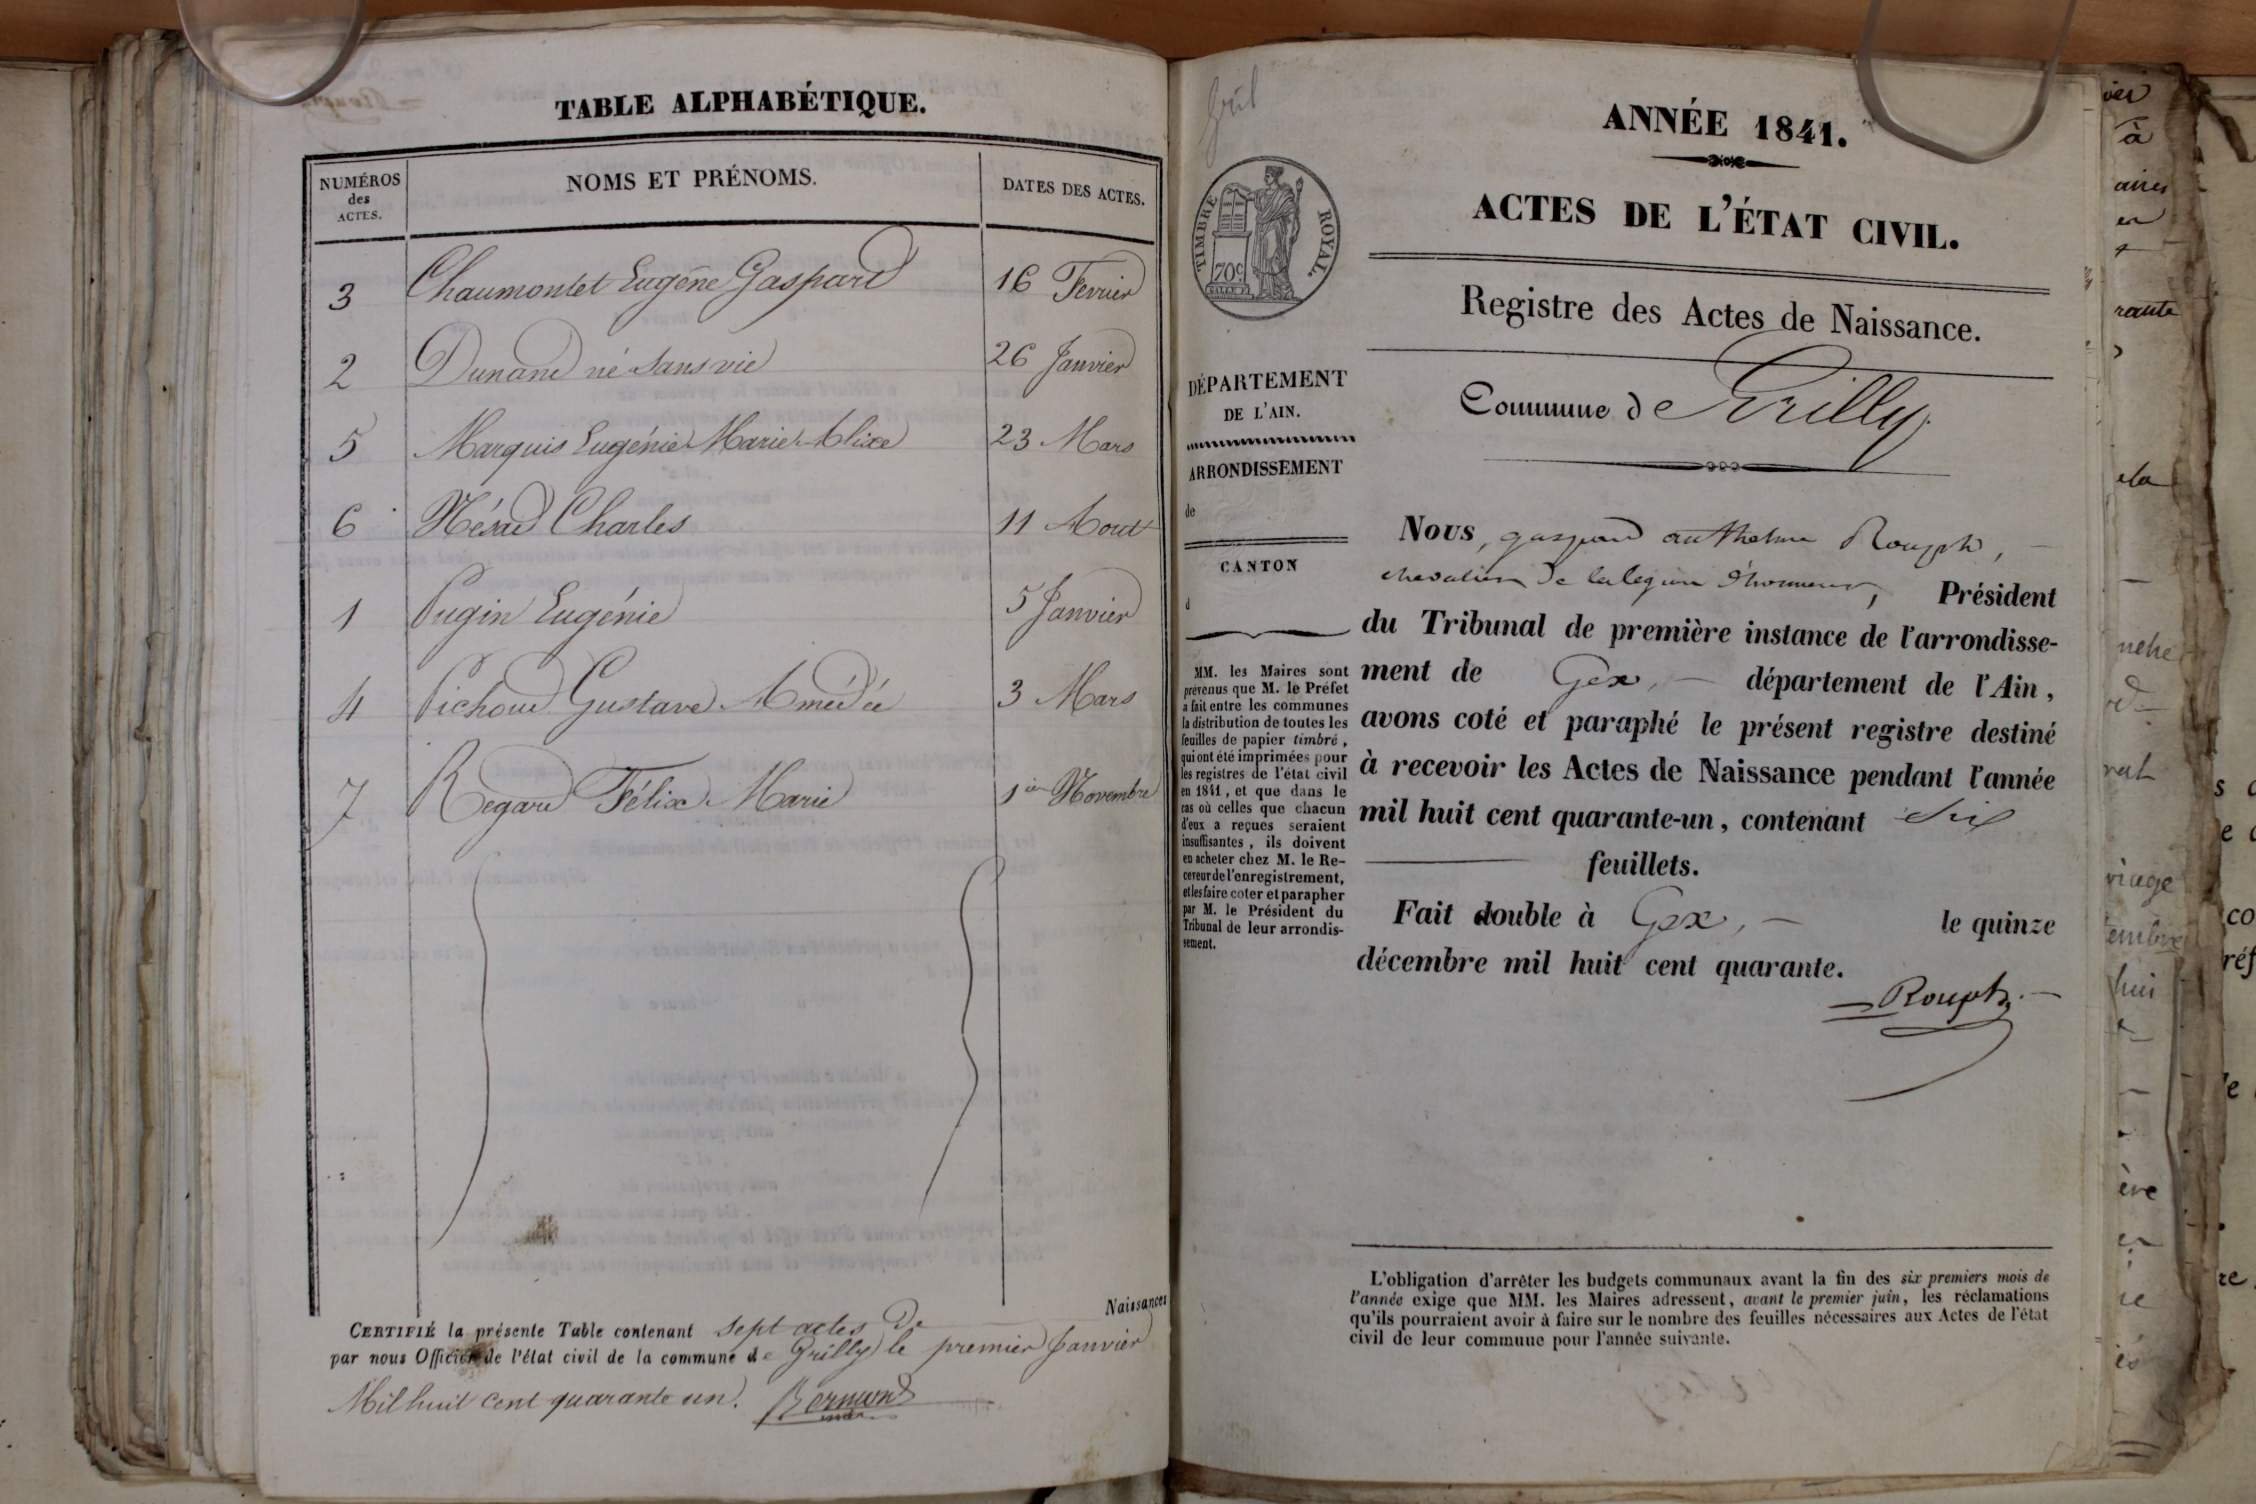 TABLE ALPHABÉTIQUE.
NUMÉROS des ACTES. NOMS ET PRÉNOMS. DATES DES ACTES.
3 Chaumontet Eugène Gaspard 16 Fevrier
2 Dunand né sans vie 26 Janvier
5 Marquis Eugénie Marie Alixe 23 Mars
6 Charles 11 Aout
1 Pugin Eugénie 5 Janvier
4 Pichoud Gustave Amédée 3 Mars
7 Regard Félix Marie 1er Novembre
Naissances
CERTIFIÉ la présente Table contenant sept actes de
par nous Officier de l'état civil de la commune de Grilly le premier Janvier
Mil huit cent quarante un.
ANNÉE 1841.
ACTES DE L'ÉTAT CIVIL.
Registre des Actes de Naissance.
Commune de Grilly
TIMBRE ROYAL.
70c
DÉPARTEMENT
DE L'AIN.
ARRONDISSEMENT
de
CANTON
d
MM. les Maires sont
prévenus que M. le Préfet
a fait entre les communes
la distribution de toutes les
feuilles de papier timbré,
qui ont été imprimées pour
les registres de l'état civil
en 1841, et que dans le
cas où celles que chacun
d'eux a reçues seraient
insuffisantes, ils doivent
en acheter chez M. le Re-
ceveur de l'enregistrement,
et les faire coter et parapher
par M. le Président du
Tribunal de leur arrondis-
sement.
Nous, gaspard anthelme Rouph,
chevalier de la legion d'honneur, Président
du Tribunal de première instance de l'arrondisse-
ment de Gex, département de l'Ain,
avons coté et paraphé le présent registre destiné
à recevoir les Actes de Naissance pendant l'année
mil huit cent quarante-un, contenant six
feuillets.
Fait double à Gex, le quinze
décembre mil huit cent quarante.
Rouph
L'obligation d'arrêter les budgets communaux avant la fin des six premiers mois de
l'année exige que MM. les Maires adressent, avant le premier juin, les réclamations
qu'ils pourraient avoir à faire sur le nombre des feuilles nécessaires aux Actes de l'état
civil de leur commune pour l'année suivante.